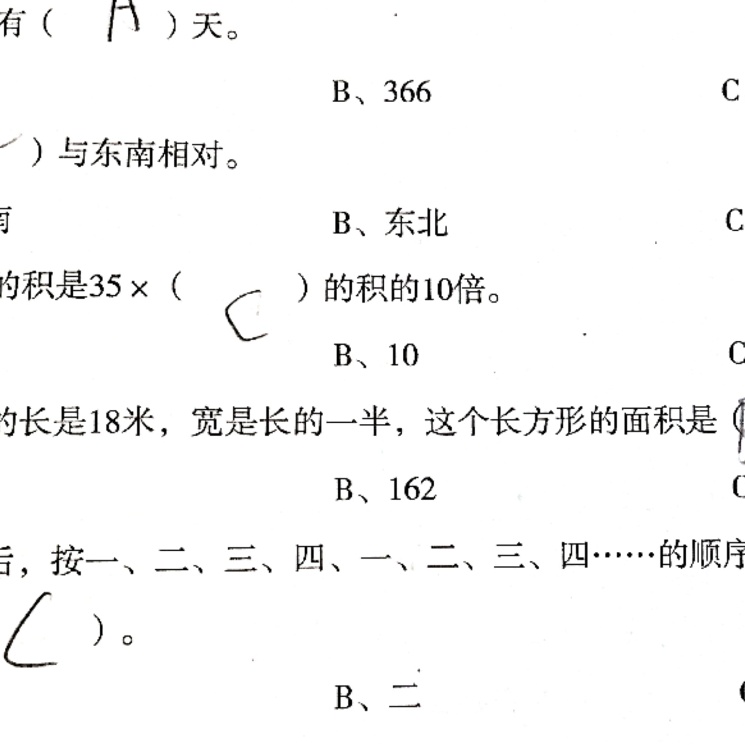 有（ A ）天。
B、366 C
）与东南相对。
B、东北 C
的积是35×（ C ）的积的10倍。
B、10 C
的长是18米，宽是长的一半，这个长方形的面积是（
B、162 C
后，按一、二、三、四、一、二、三、四……的顺序
C ）。
B、二